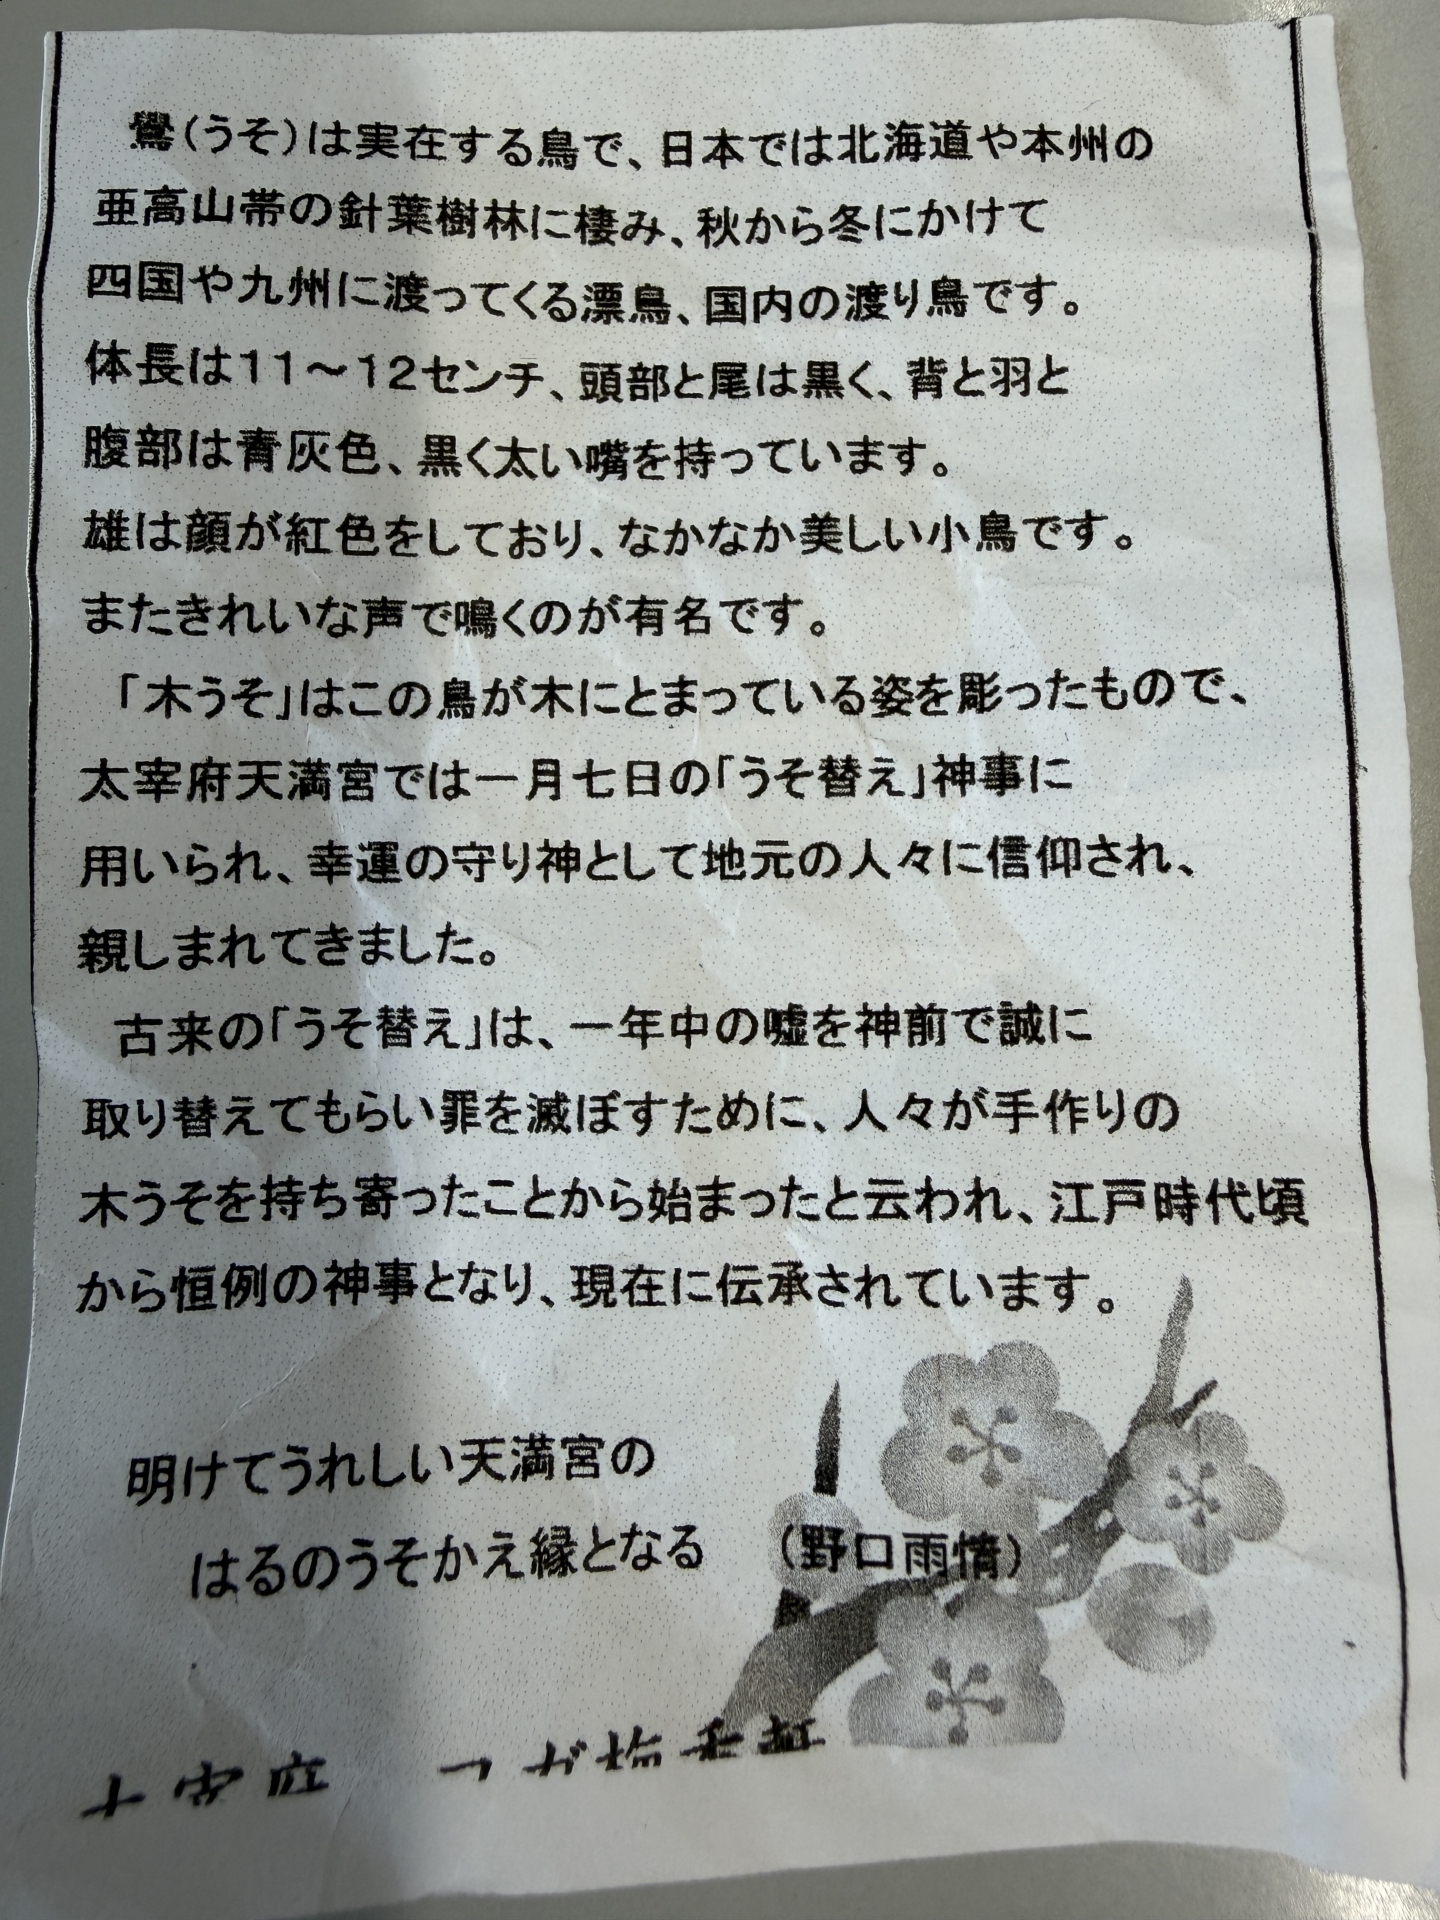 鷽(うそ)は実在する鳥で、日本では北海道や本州の
亜高山帯の針葉樹林に棲み、秋から冬にかけて
四国や九州に渡ってくる漂鳥、国内の渡り鳥です。
体長は11～12センチ、頭部と尾は黒く、背と羽と
腹部は青灰色、黒く太い嘴を持っています。
雄は顔が紅色をしており、なかなか美しい小鳥です。
またきれいな声で鳴くのが有名です。
「木うそ」はこの鳥が木にとまっている姿を彫ったもので、
太宰府天満宮では一月七日の「うそ替え」神事に
用いられ、幸運の守り神として地元の人々に信仰され、
親しまれてきました。
古来の「うそ替え」は、一年中の嘘を神前で誠に
取り替えてもらい罪を滅ぼすために、人々が手作りの
木うそを持ち寄ったことから始まったと云われ、江戸時代頃
から恒例の神事となり、現在に伝承されています。
明けてうれしい天満宮の
はるのうそかえ縁となる (野口雨情)